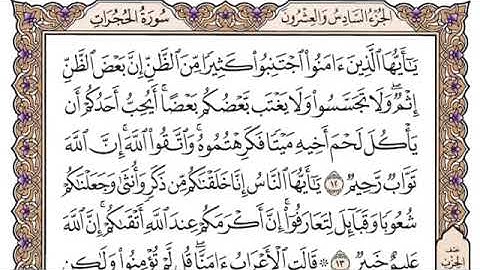 سُورَةُ الحُجُرَاتِ الجُزءُ السَّادِسُ وَالعِشْرُونَ
يَٰٓأَيُّهَا ٱلَّذِينَ ءَامَنُوا۟ ٱجْتَنِبُوا۟ كَثِيرًا مِّنَ ٱلظَّنِّ إِنَّ بَعْضَ ٱلظَّنِّ
إِثْمٌ ۖ وَلَا تَجَسَّسُوا۟ وَلَا يَغْتَب بَّعْضُكُم بَعْضًا ۚ أَيُحِبُّ أَحَدُكُمْ أَن
يَأْكُلَ لَحْمَ أَخِيهِ مَيْتًا فَكَرِهْتُمُوهُ ۚ وَٱتَّقُوا۟ ٱللَّهَ ۚ إِنَّ ٱللَّهَ
تَوَّابٌ رَّحِيمٌ ١٢ يَٰٓأَيُّهَا ٱلنَّاسُ إِنَّا خَلَقْنَٰكُم مِّن ذَكَرٍ وَأُنثَىٰ وَجَعَلْنَٰكُمْ
شُعُوبًا وَقَبَآئِلَ لِتَعَارَفُوٓا۟ ۚ إِنَّ أَكْرَمَكُمْ عِندَ ٱللَّهِ أَتْقَىٰكُمْ ۚ إِنَّ ٱللَّهَ
عَلِيمٌ خَبِيرٌ ١٣ ۞ قَالَتِ ٱلْأَعْرَابُ ءَامَنَّا ۖ قُل لَّمْ تُؤْمِنُوا۟ وَلَٰكِن
نصف
الحزب